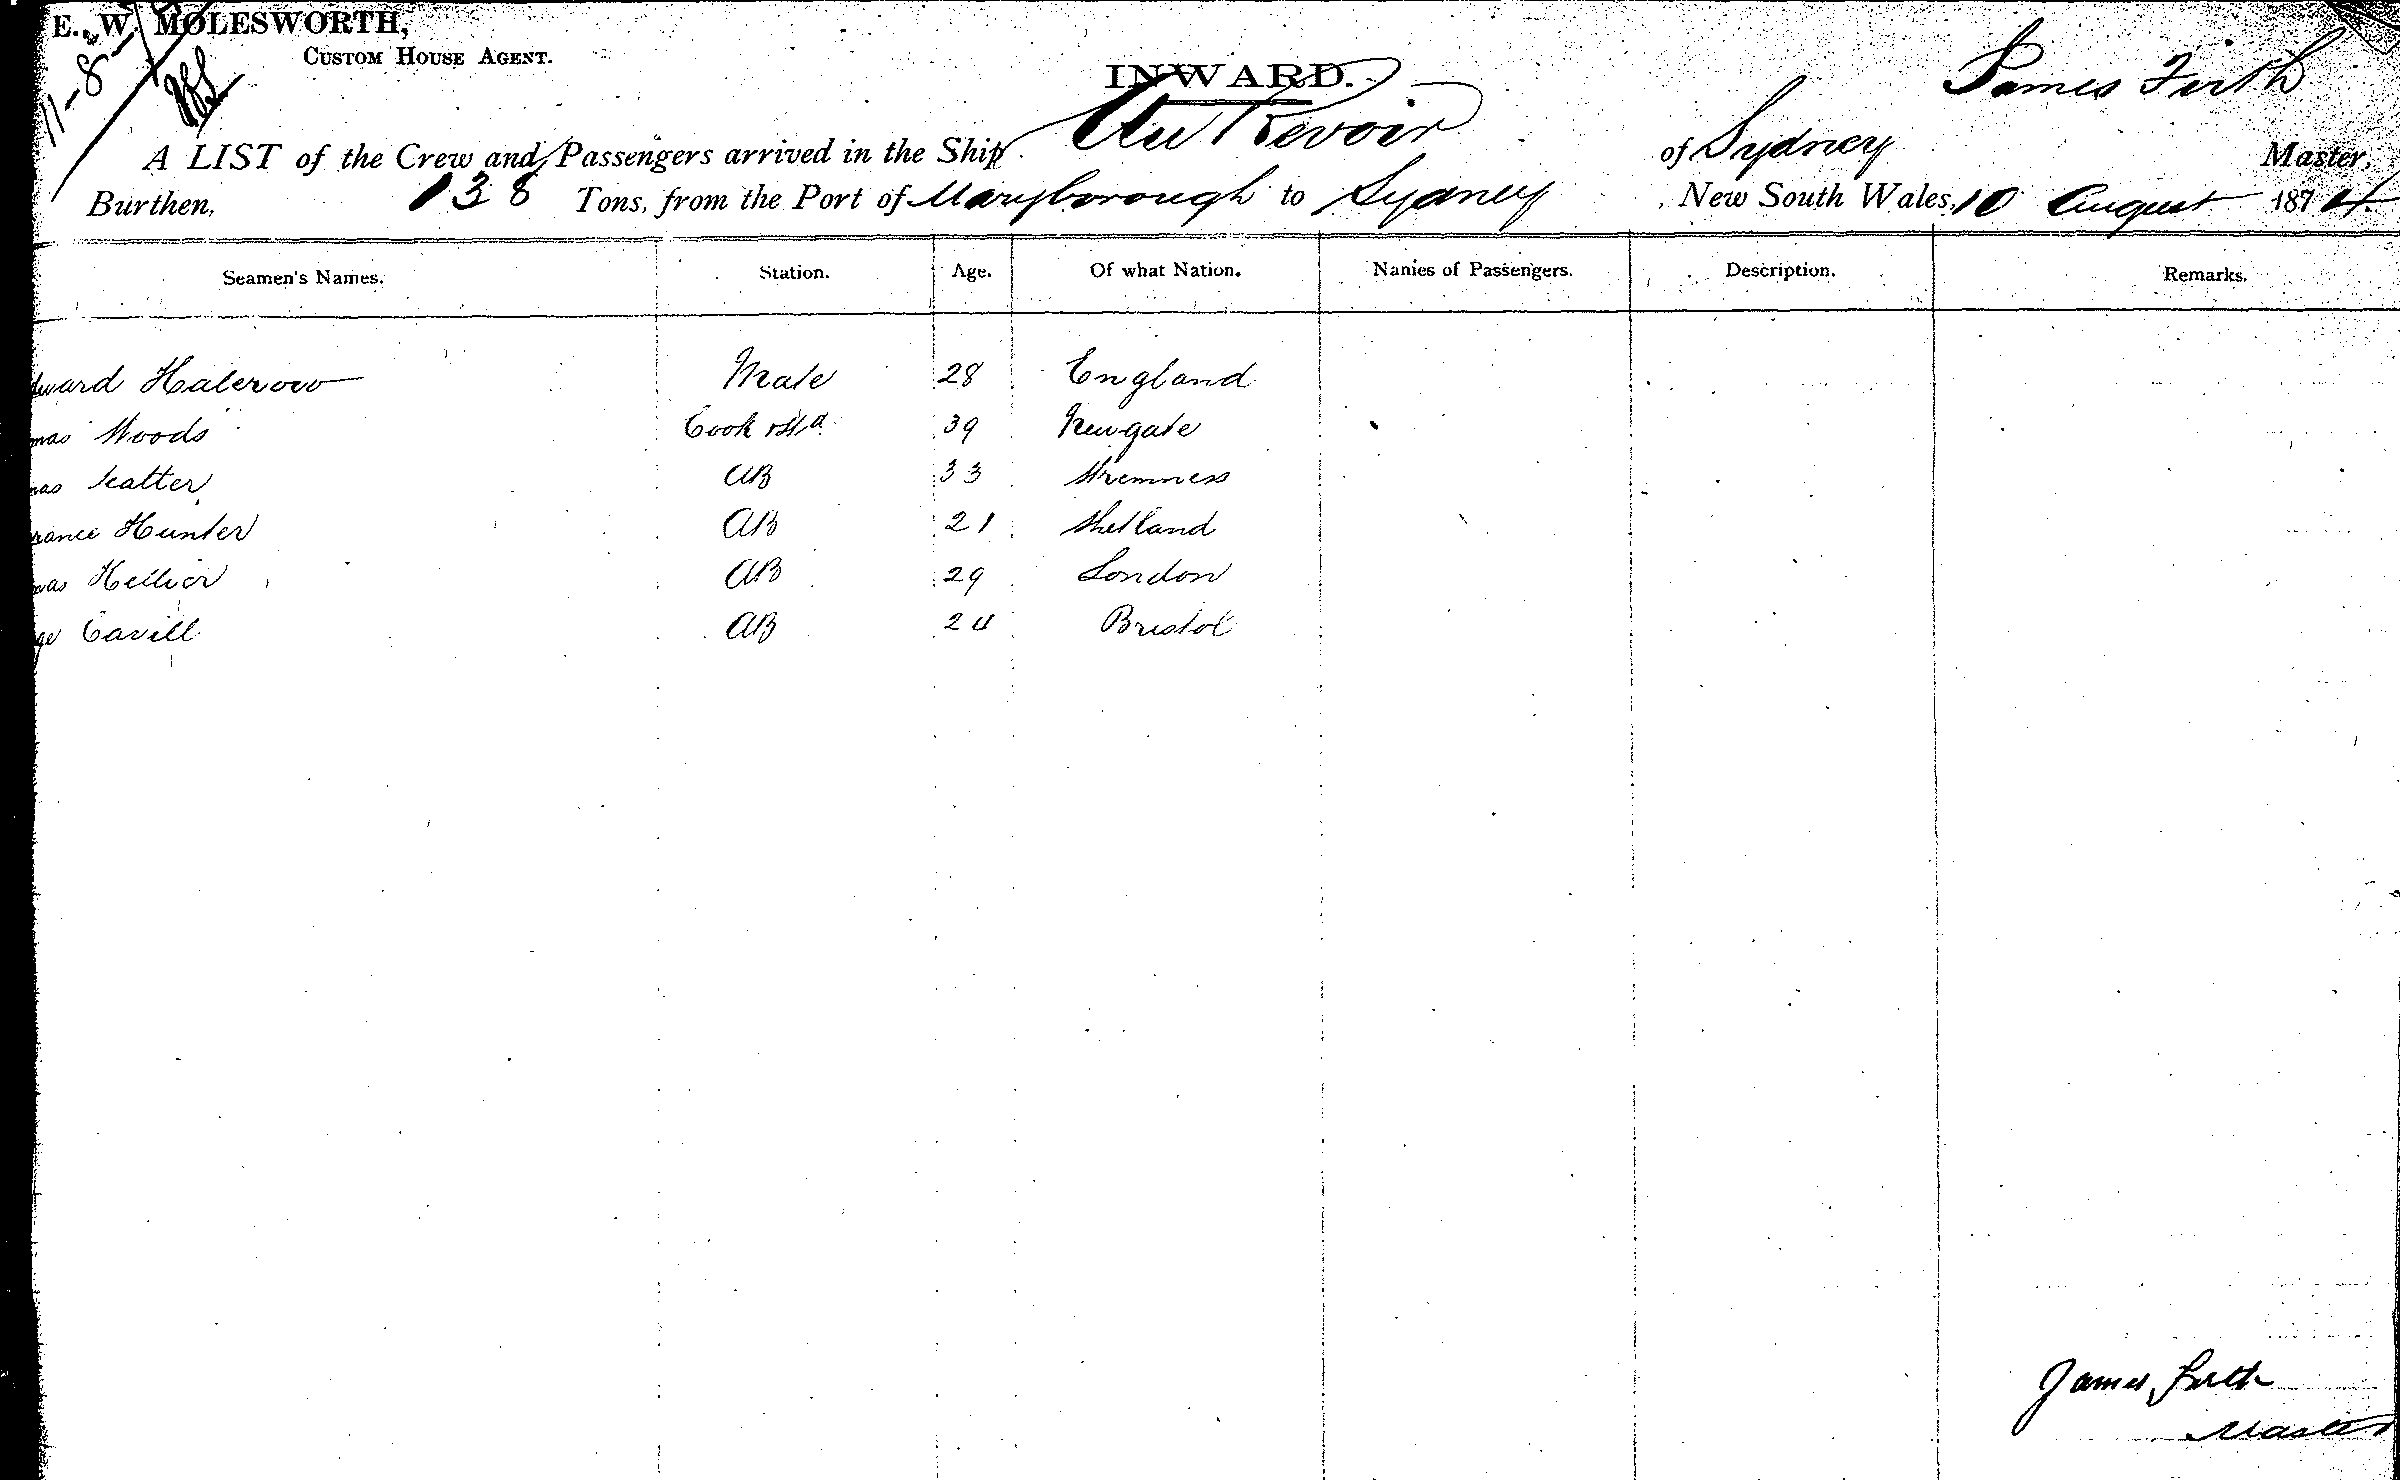 E. W. MOLESWORTH,
CUSTOM HOUSE AGENT.
11-8-
INWARD.
James Firth
A LIST of the Crew and Passengers arrived in the Ship Au Revoir of Sydney Master,
Burthen, 138 Tons, from the Port of Maryborough to Sydney New South Wales, 10 August 1874
Seamen's Names. Station. Age. Of what Nation. Names of Passengers. Description. Remarks.
dward Halcrow Mate 28 England
mas Woods Cook 39 Newgate
mas Scatter AB 33 Stremness
rance Hunter AB 21 Shetland
mas Hellier AB 29 London
ge Cavill AB 24 Bristol
James Firth
Master